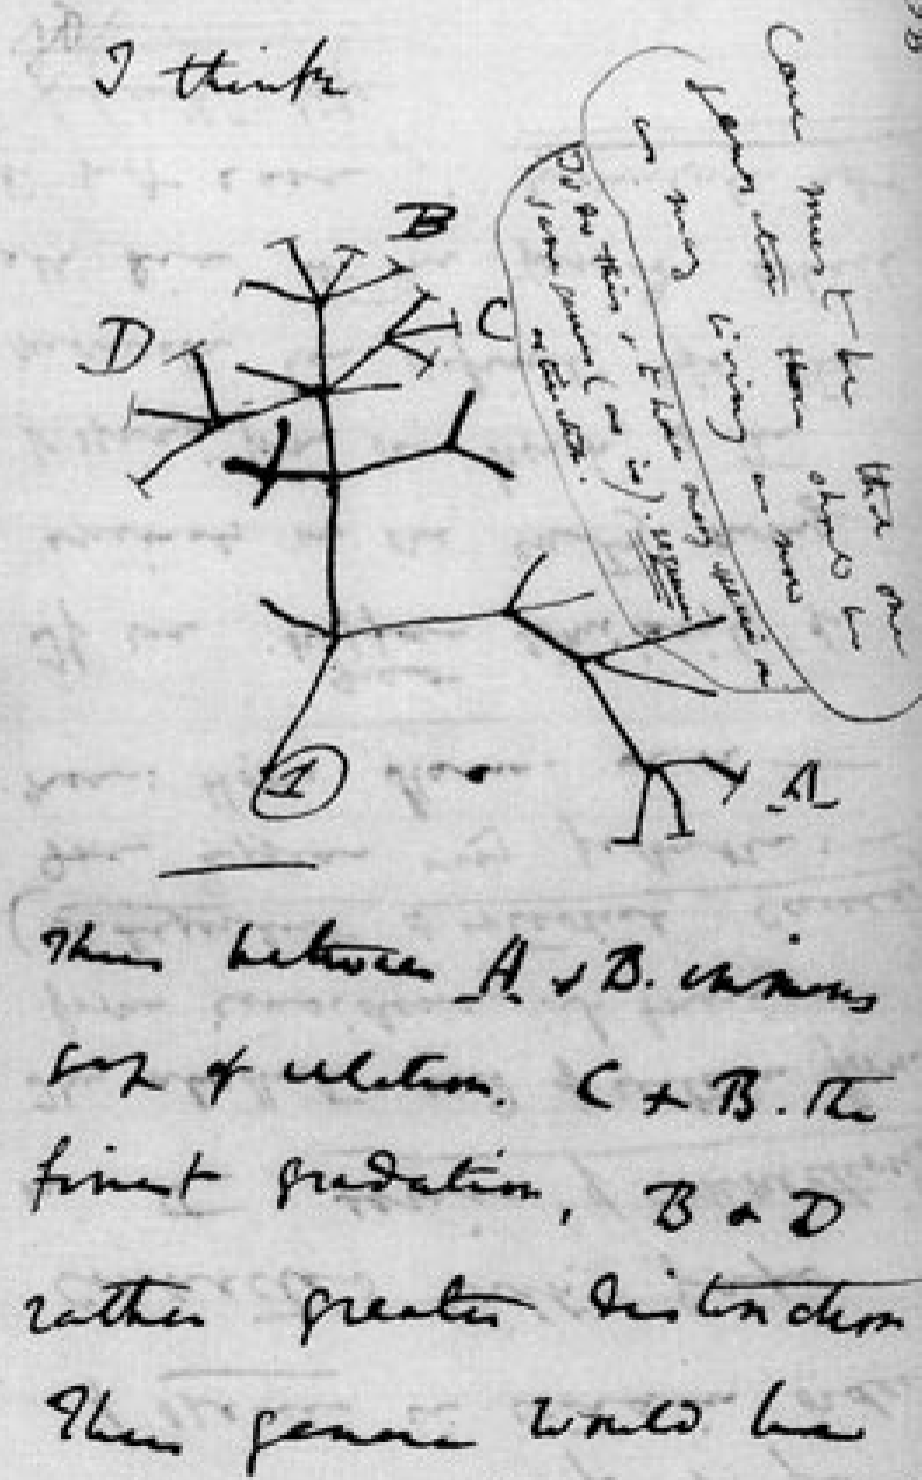 I think
B
C
D
A
1
Case must be that one
generation then should be
as many living as now
To do this & to have many species in
same genus (as is). requires
extinction.
Thus between A & B. immens
gap of relation. C & B. The
finest gradation, B & D
rather greater distinction
Thus genera would be